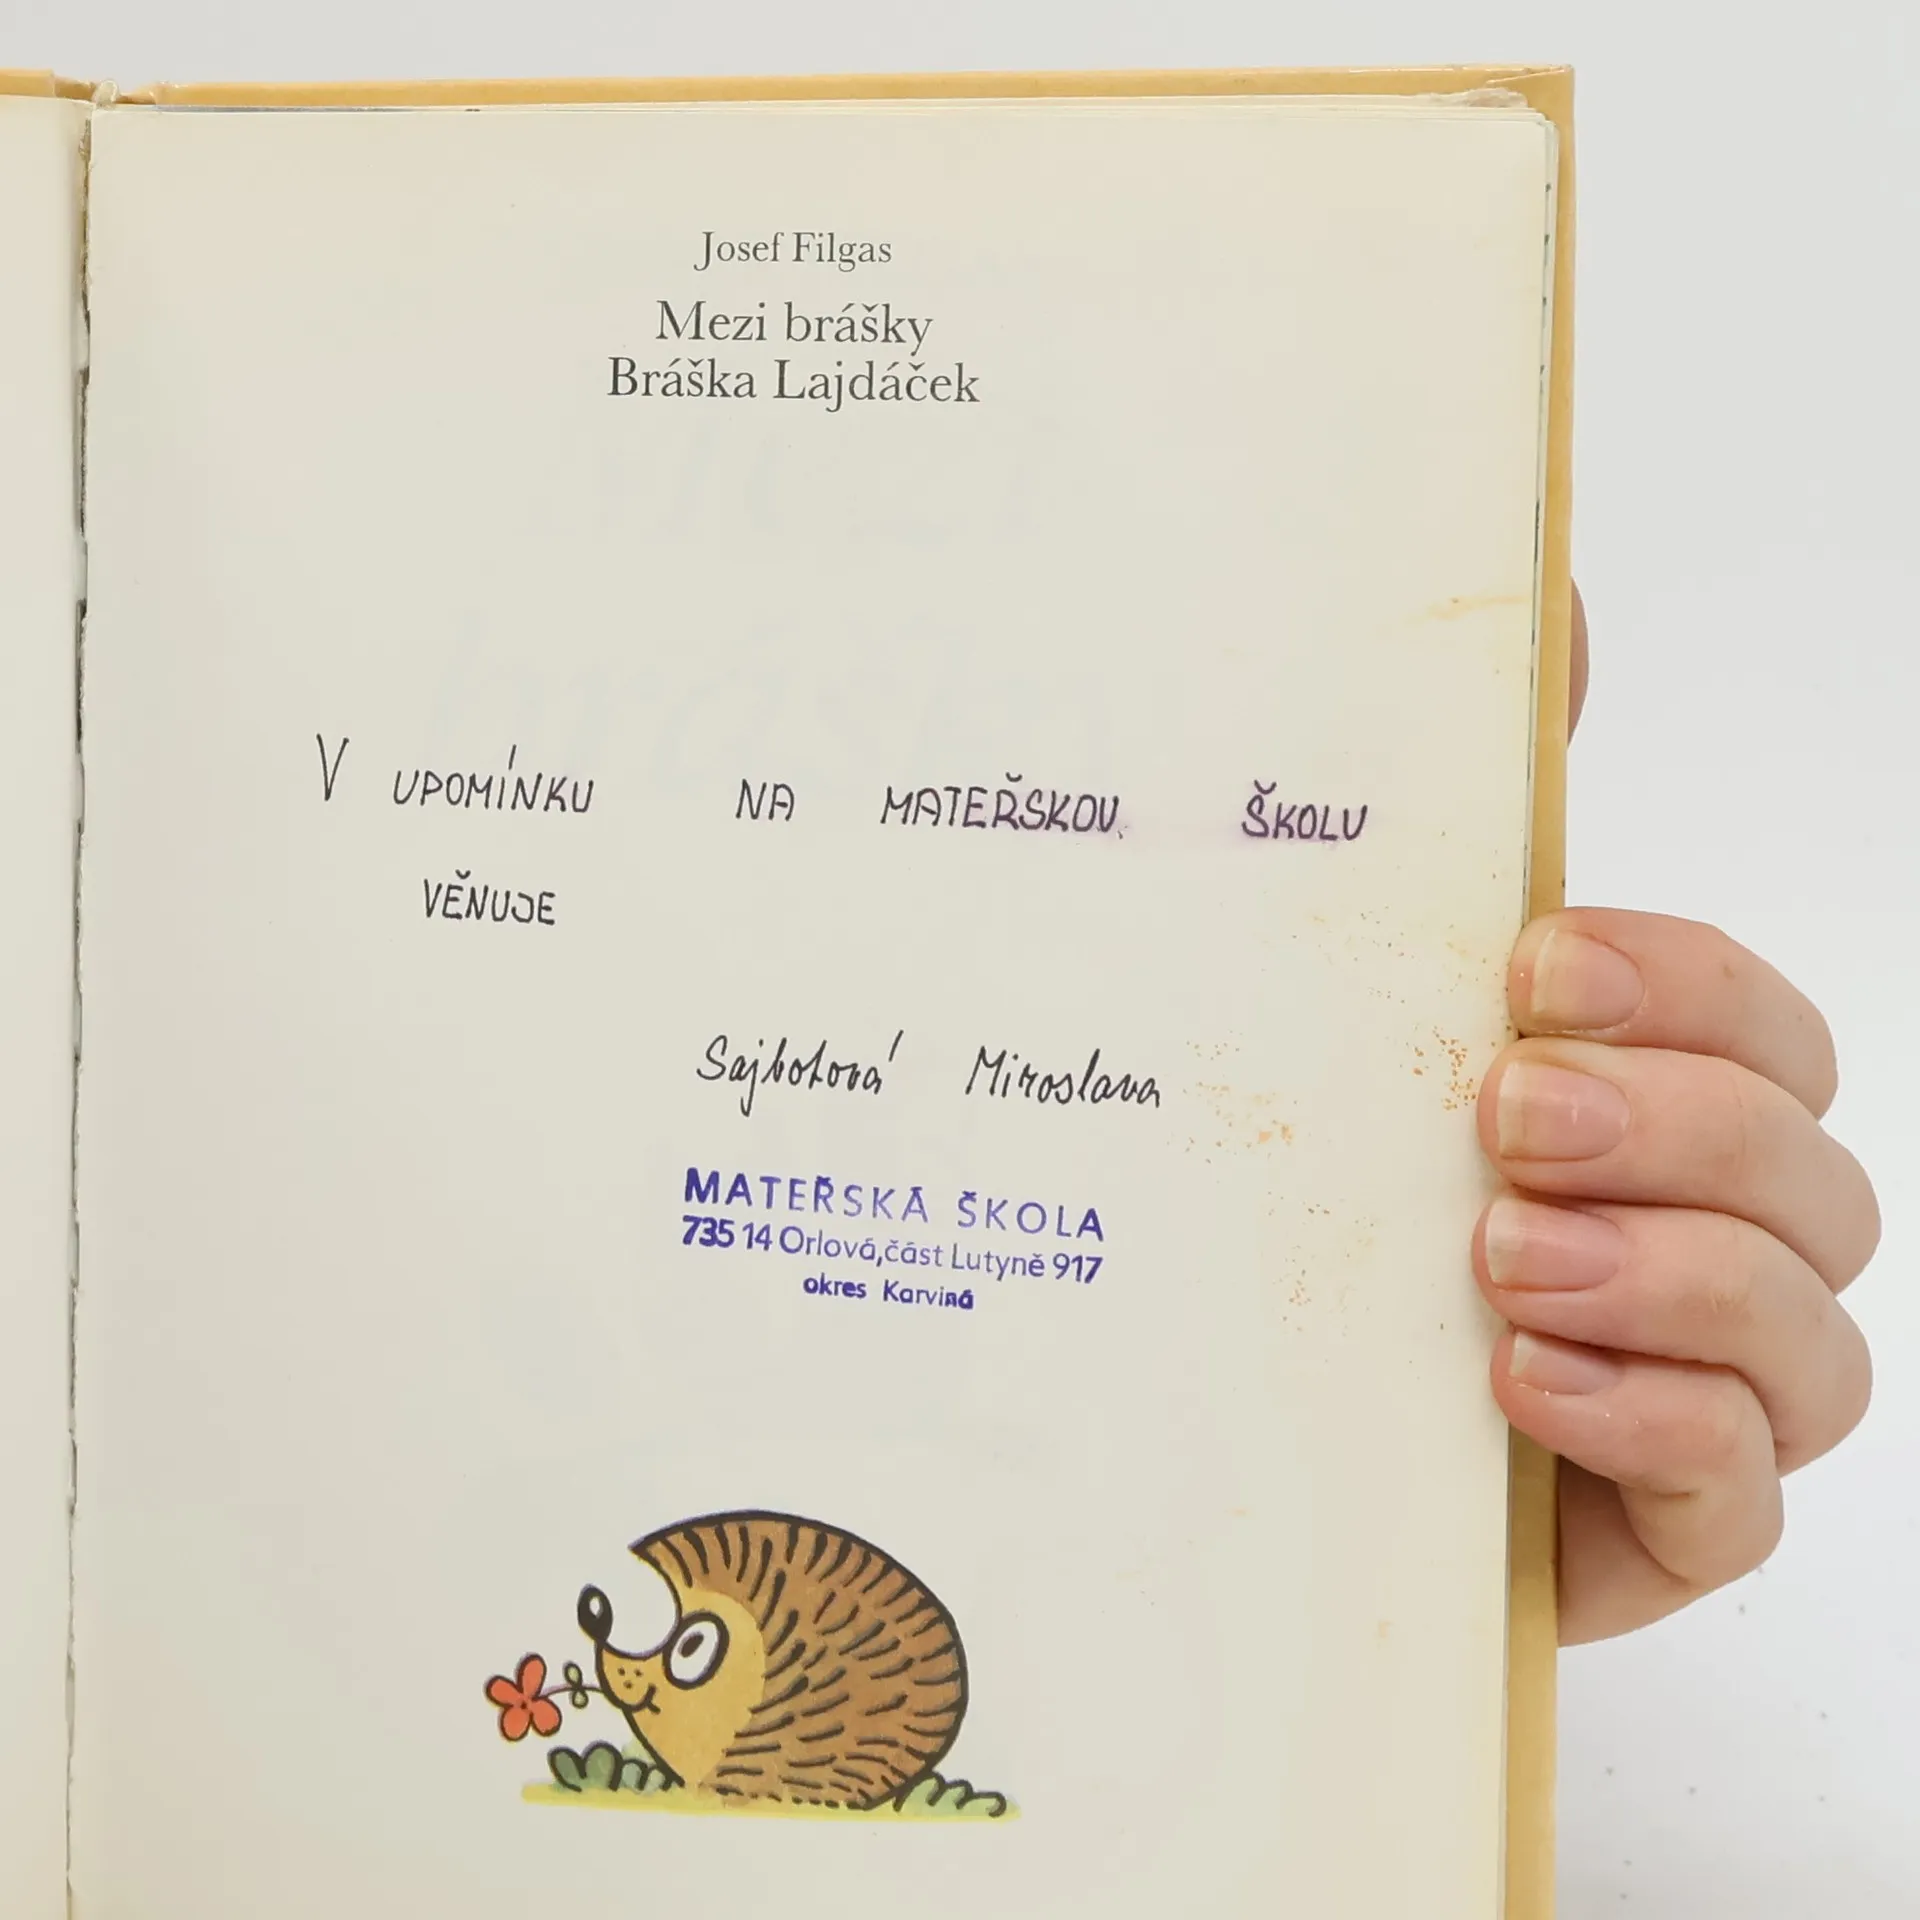 Josef Filgas
Mezi brášky
Bráška Lajdáček
V UPOMÍNKU NA MATEŘSKOU ŠKOLU
VĚNUJE
Sajbotová Miroslava
MATEŘSKÁ ŠKOLA
735 14 Orlová, část Lutyně 917
okres Karviná